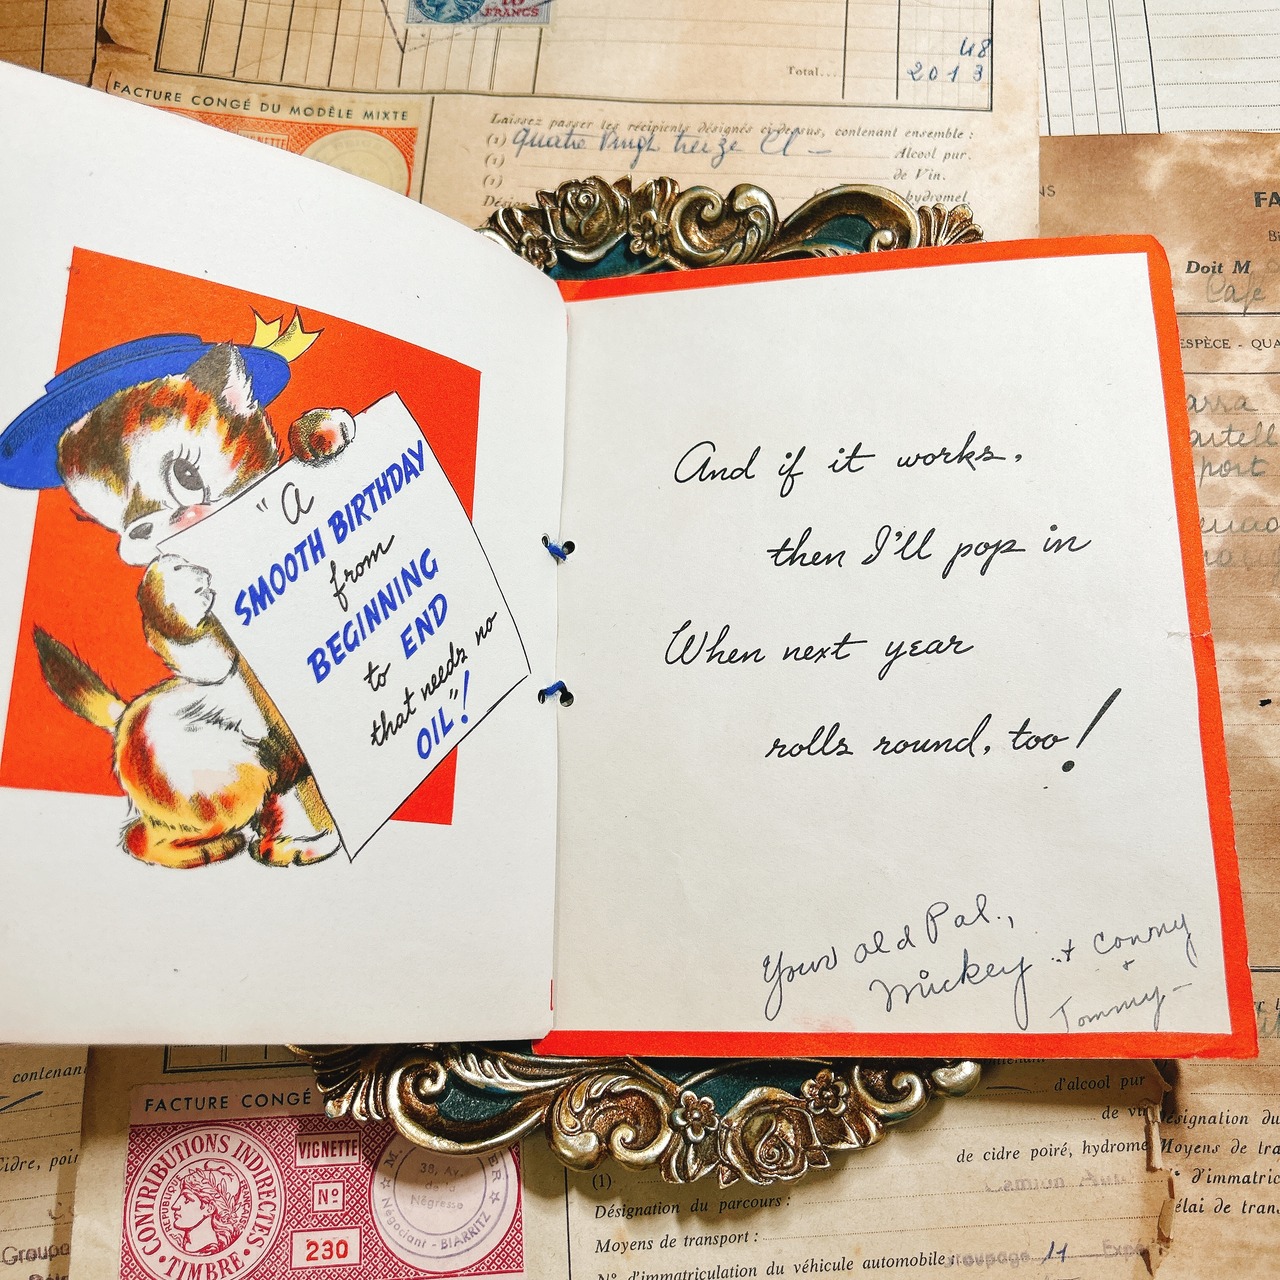 10
FRANCS
48
Total...
2013
FACTURE CONGÉ DU MODÈLE MIXTE
VIGNETTE
Laissez passer les récipients désignés ci-dessus, contenant ensemble :
(1)
Alcool pur.
(1)
de Vin.
(1)
hydromel
FA
Doit M
Café
ESPÈCE - QUA
port
"A
SMOOTH BIRTHDAY
from
BEGINNING
to END
that needs no
OIL"!
And if it works,
then I'll pop in
When next year
rolls round, too!
Your old Pal.,
Mickey + Conny
+
Tommy-
contenant
Cidre, poir
Groupa
FACTURE CONGÉ
CONTRIBUTIONS INDIRECTES
TIMBRE
RÉPUBLIQUE FRANÇAISE
VIGNETTE
No
230
38, Av.
de la
Négresse
Négociant - BIARRITZ
d'alcool pur
de vin
de cidre poiré, hydrome
(1)
Camion
Désignation du parcours :
Moyens de transport :
N° d'immatriculation du véhicule automobile :
Groupage 11
désignation du
Moyens de tra
N° d'immatric
élai de tran